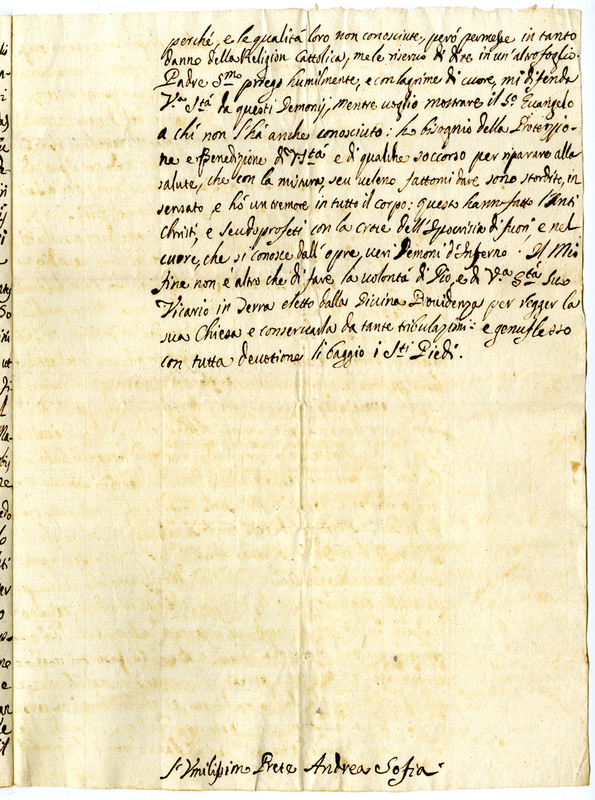 perché, e le qualità loro non conosciute, però permesse in tanto
danno della Religion Cattolica, me le riservo di dire in un'altro foglio.
Padre S.mo priego humilmente, e con lagrime di cuore, mi difenda
V.a S.tà da questi Demonij, mentre voglio mostrare il S.o Evangelo
a chi non l'hà anche conosciuto: hò bisognio della Protezzio-
ne e Benedizione di V.S.tà e di qualche soccorso per riparare alla
salute, che con la mistura, seu veleno fattomi dare sono stordito, in
sensato, e hò un tremore in tutto il corpo: questo hann fatto l'Anti
Christi, e seudoprofeti con la dell'Ipocrisia di fuori, e nel
cuore, che si conosce dall'opre, veri Demoni d'Inferno: Il Mio
fine non é altro che di fare la volontà di Dio, e di V.a S.tà Suo
Vicario in Terra eletto dalla Divina Providenza per regger la
sua Chiesa e conservarla da tante tribulazini: e genuflesso
con tutta devotione li baggio i S.ti Piedi.
Vmilissim Prete Andrea Sofia